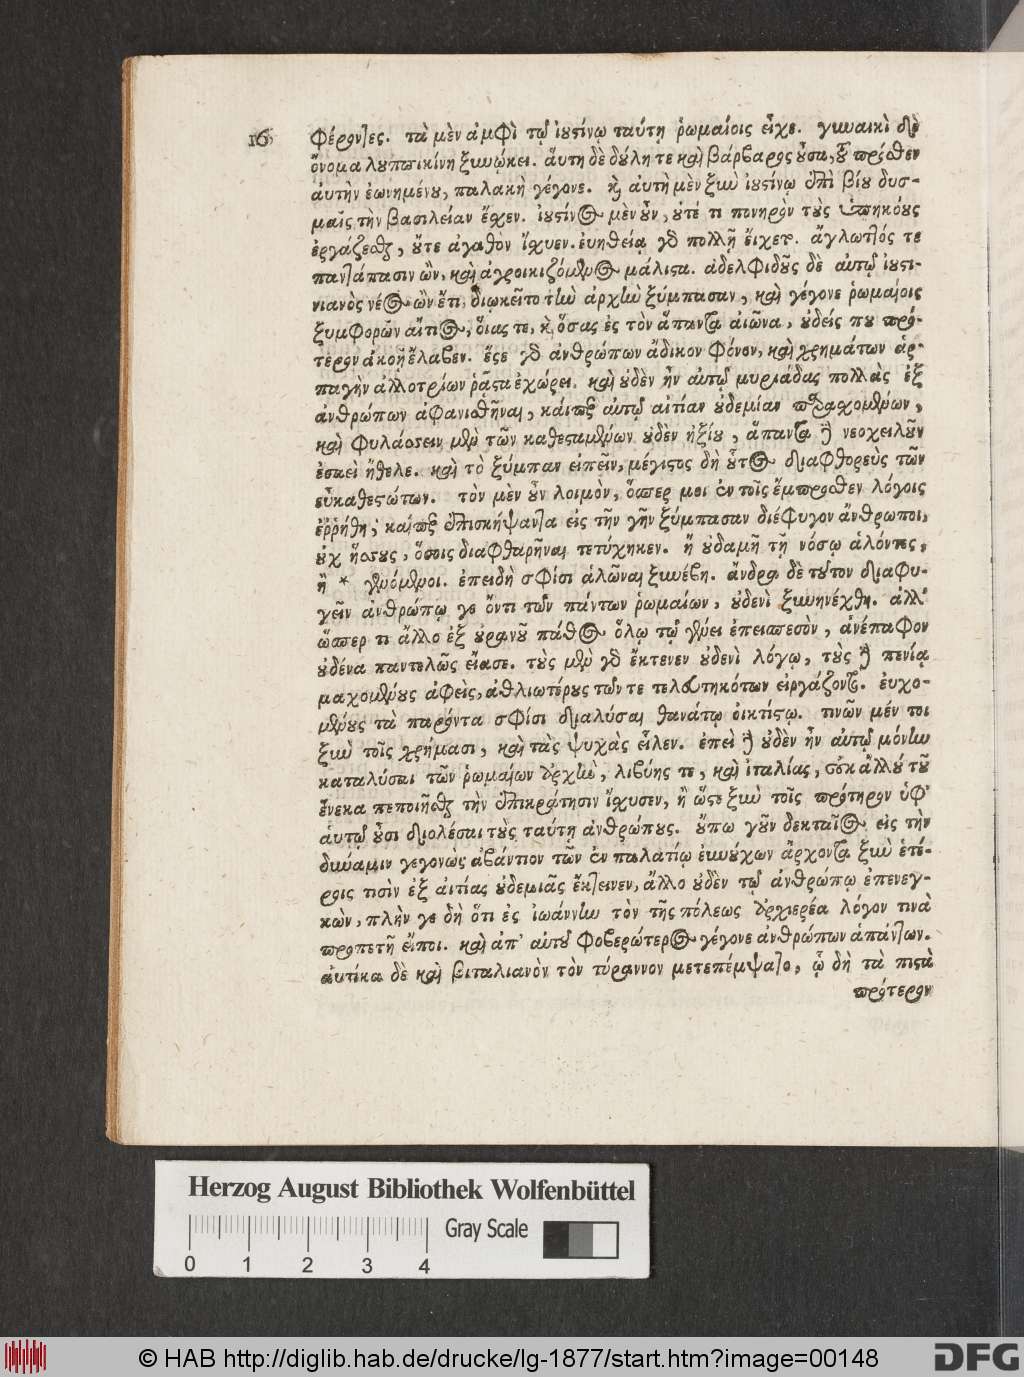 16 φέροντες. τὰ μὲν ἀμφὶ τῷ ἰουστίνῳ ταύτῃ ῥωμαίοις εἶχε. γυναικὶ δὲ
ὄνομα λουππικίνη ξυνῴκει. αὕτη δὲ δούλη τε καὶ βάρβαρος οὖσα, τοῦ πρόσθεν
αὐτὴν ἐωνημένου, παλακὴ γέγονε. καὶ αὐτὴ μὲν ξὺν ἰουστίνῳ ἐπὶ βίου δυσ-
μαῖς τὴν βασιλείαν ἔσχεν. ἰουστῖνος μὲν οὖν, οὐτέ τι πονηρὸν τοὺς ὑπηκόους
ἐργάζεσθαι, οὔτε ἀγαθὸν ἴσχυεν. εὐηθείᾳ γὰρ πολλῇ εἴχετο. ἄγλωττός τε
παντάπασιν ὢν, καὶ ἀγροικιζόμενος μάλιστα. ἀδελφιδοῦς δὲ αὐτῷ ἰουστι-
νιανὸς νέος ὢν ἔτι, διῳκεῖτο τὴν ἀρχὴν ξύμπασαν, καὶ γέγονε ῥωμαίοις
ξυμφορῶν αἴτιος, οἵας τε, καὶ ὅσας ἐς τὸν ἅπαντα αἰῶνα, οὐδείς που πρό-
τερον ἀκοῇ ἔλαβεν. ἔς τε γὰρ ἀνθρώπων ἄδικον φόνον, καὶ χρημάτων ἁρ-
παγὴν ἀλλοτρίων ῥᾷστα ἐχώρει. καὶ οὐδὲν ἦν αὐτῷ μυριάδας πολλὰς ἐξ
ἀνθρώπων ἀφανισθῆναι, καίπερ αὐτῷ αἰτίαν οὐδεμίαν παρασχομένων,
καὶ φυλάσσειν μὲν τῶν καθεσταμένων οὐδὲν ἠξίου, ἅπαντα δὲ νεοχειλοῦν
ἐσαεὶ ἤθελε. καὶ τὸ ξύμπαν εἰπεῖν, μέγιστος δὴ οὗτος διαφθορεὺς τῶν
εὖ καθεστώτων. τὸν μὲν οὖν λοιμὸν, ὅσπερ μοι ἐν τοῖς ἔμπροσθεν λόγοις
ἐῤῥήθη, καίπερ ἐπισκήψαντα εἰς τὴν γῆν ξύμπασαν διέφυγον ἄνθρωποι,
οὐχ ἥσσους, ὅσοις διαφθαρῆναι τετύχηκεν. ἢ οὐδαμῆ τῇ νόσῳ ἁλόντες,
ἢ * γενόμενοι. ἐπειδὴ σφίσι ἁλῶναι ξυνέβη. ἄνδρα δὲ τοῦτον διαφυ-
γεῖν ἀνθρώπῳ γε ὄντι τῶν πάντων ῥωμαίων, οὐδενὶ ξυνηνέχθη. ἀλλ'
ὥσπερ τι ἄλλο ἐξ οὐρανοῦ πάθος ὅλῳ τῷ γένει ἐπειπεσὸν, ἀνέπαφον
οὐδένα παντελῶς εἴασε. τοὺς μὲν γὰρ ἔκτενεν οὐδενὶ λόγῳ, τοὺς δὲ πενίᾳ
μαχομένους ἀφεὶς, ἀθλιωτέρους τῶν τε τελευτηκότων εἰργάζοντο. εὐχο-
μένους τὰ παρόντα σφίσι διαλύσαι θανάτῳ οἰκτίστῳ. τινῶν μέν τοι
ξὺν τοῖς χρήμασι, καὶ τὰς ψυχὰς εἷλεν. ἐπεὶ δὲ οὐδὲν ἦν αὐτῷ μόνην
καταλύσαι τῶν ῥωμαίων ἀρχὴν, λιβύης τε, καὶ ἰταλίας, οὐκ ἄλλου τοῦ
ἕνεκα πεποιῆσθαι τὴν ἐπικράτησιν ἴσχυσεν, ἢ ὥστε ξὺν τοῖς πρότερον ὑφ'
αὑτῷ οὖσι διολέσαι τοὺς ταύτῃ ἀνθρώπους. οὔπω γοῦν δεκταῖος εἰς τὴν
δύναμιν γεγονὼς ἀβάντιον τῶν ἐν παλατίῳ εὐνούχων ἄρχοντα ξὺν ἑτέ-
ροις τισὶν ἐξ αἰτίας οὐδεμιᾶς ἔκτεινεν, ἄλλο οὐδὲν τῷ ἀνθρώπῳ ἐπενεγ-
κὼν, πλὴν γε δὴ ὅτι ἐς ἰωάννην τὸν τῆς πόλεως ἀρχιερέα λόγον τινὰ
προπετῆ εἴποι. καὶ ἀπ' αὐτοῦ φοβερώτερος γέγονε ἀνθρώπων ἁπάντων.
αὐτίκα δὲ καὶ βιταλιανὸν τὸν τύραννον μετεπέμψατο, ᾧ δὴ τὰ πιστὰ
πρότερον
Herzog August Bibliothek Wolfenbüttel
Gray Scale
0 1 2 3 4
© HAB http://diglib.hab.de/drucke/lg-1877/start.htm?image=00148
DFG